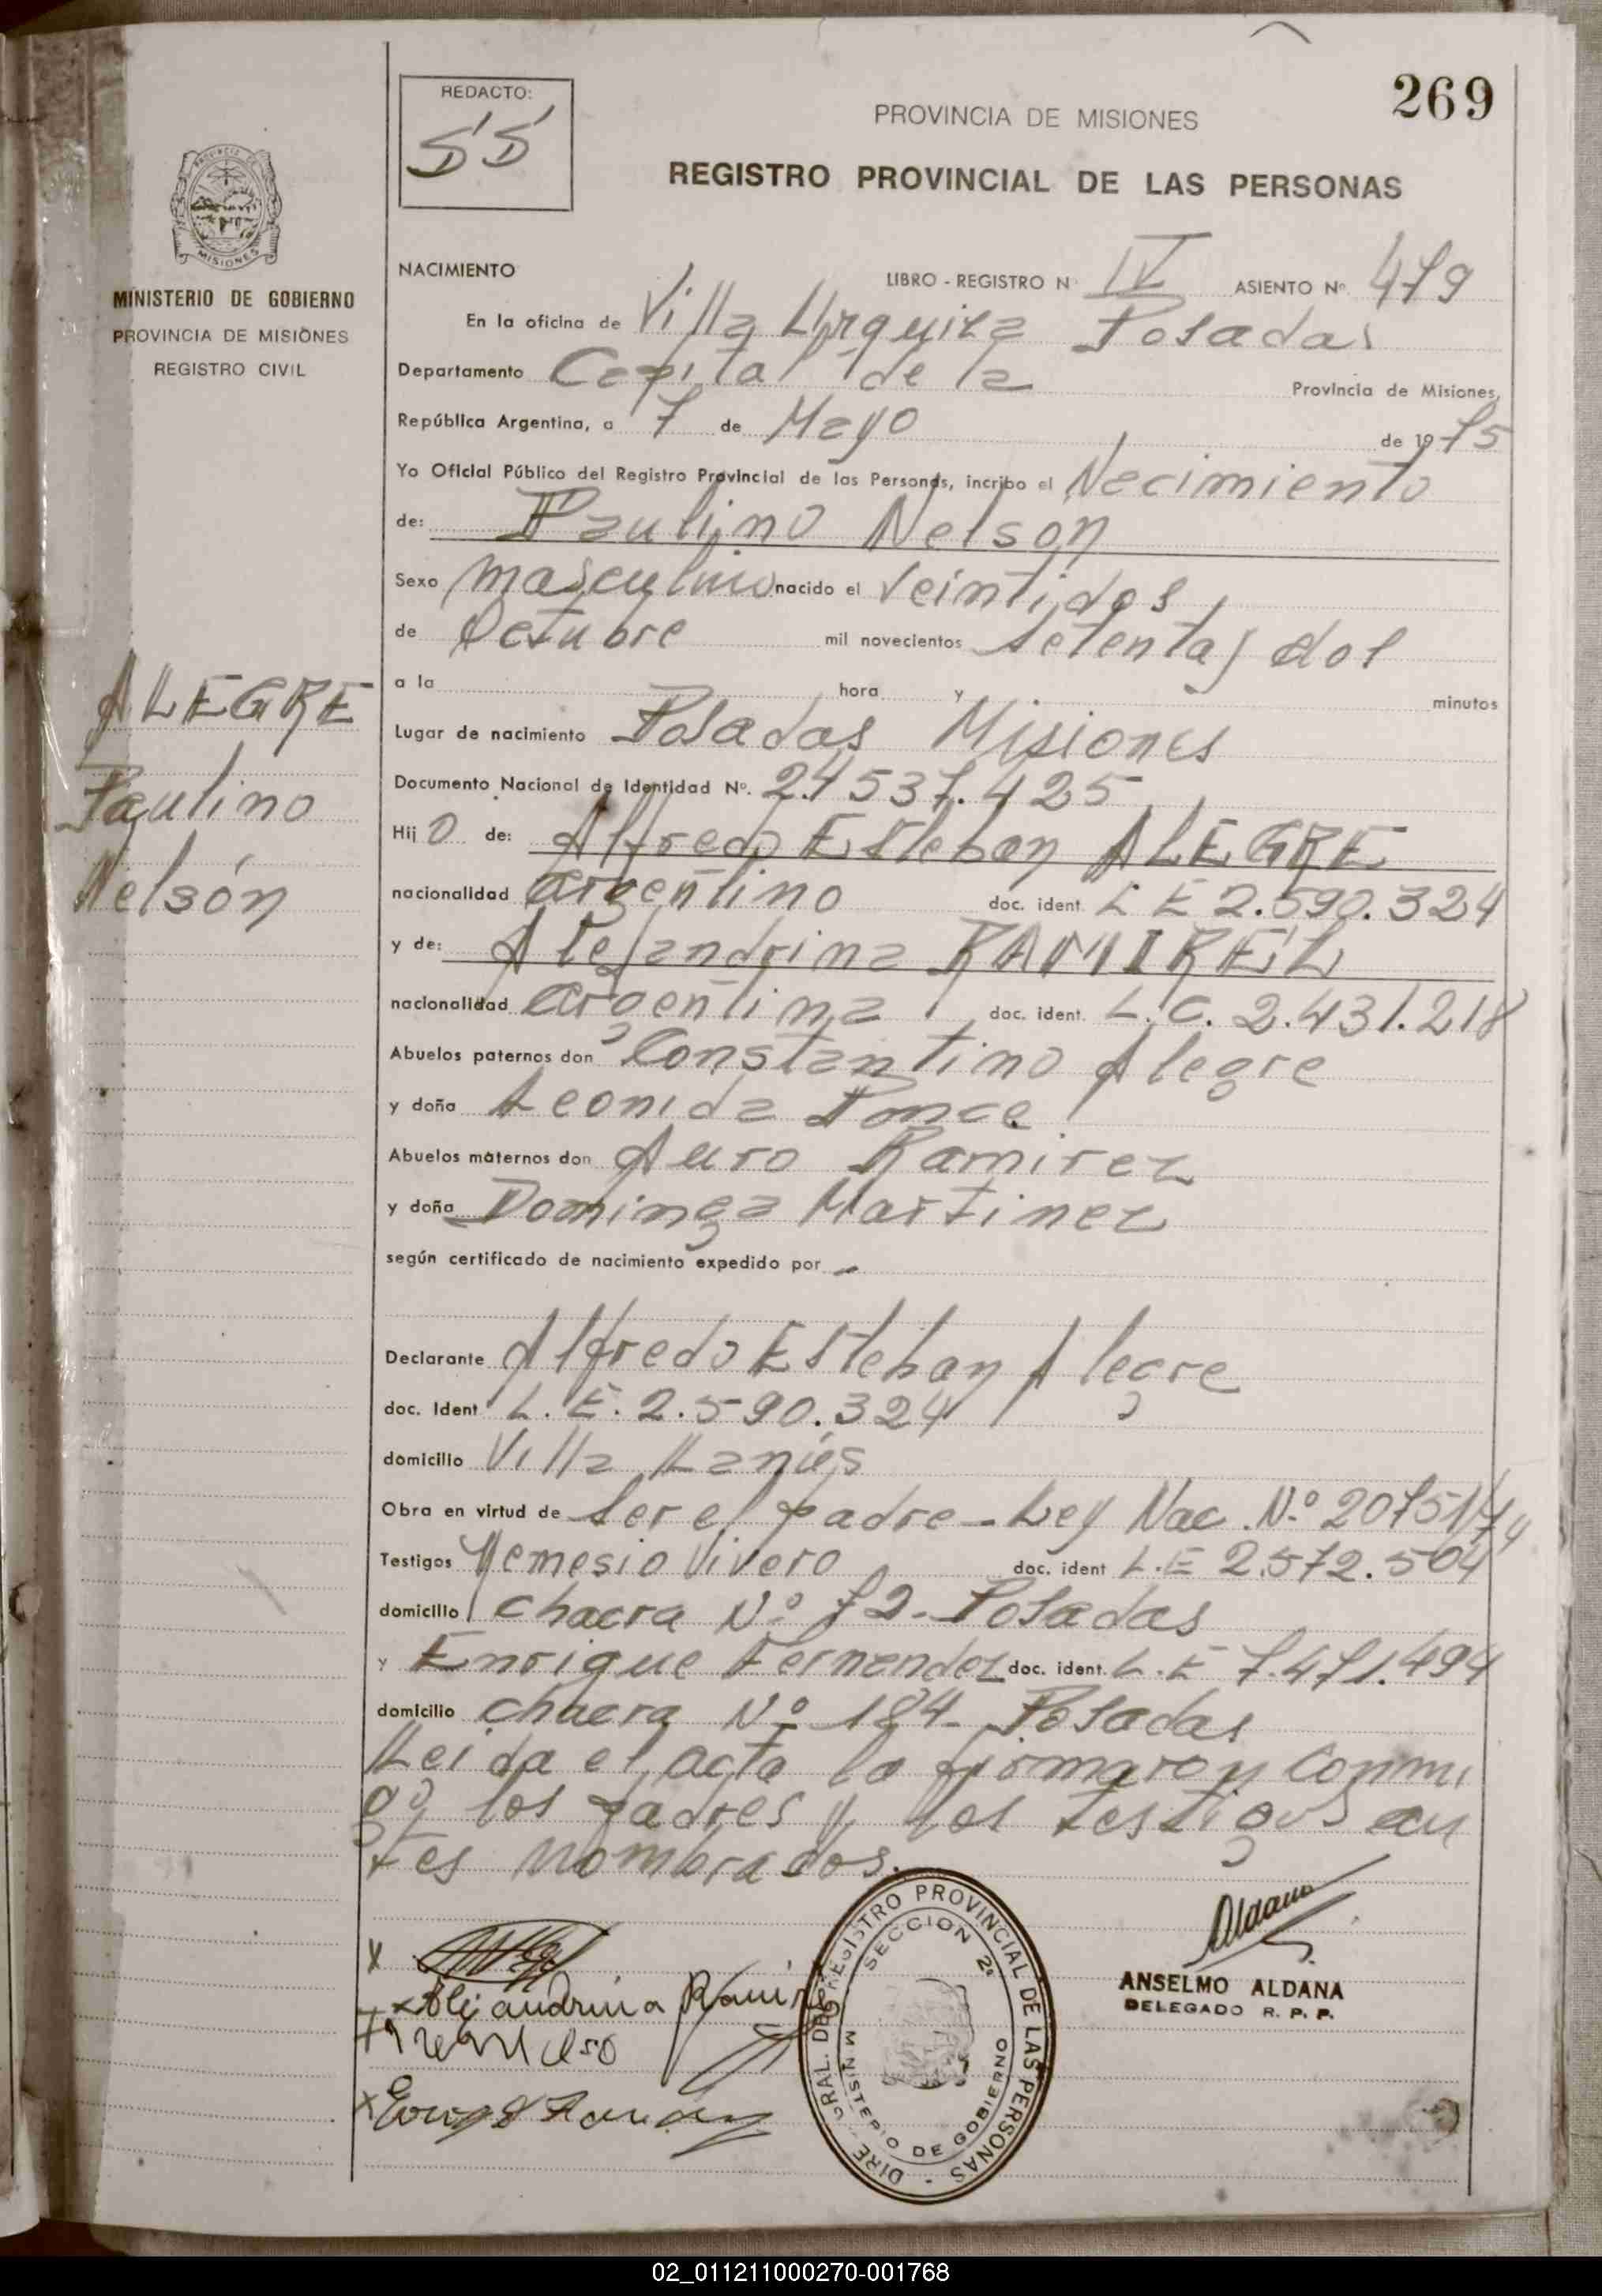 269
REDACTO:
PROVINCIA DE MISIONES
REGISTRO PROVINCIAL DE LAS PERSONAS
PROVINCIA DE
MISIONES
MINISTERIO DE GOBIERNO
PROVINCIA DE MISIONES
REGISTRO CIVIL
NACIMIENTO LIBRO - REGISTRO N IV ASIENTO Nº. 479
En la oficina de Villa Urquiza Posadas
Departamento Capital de la Provincia de Misiones,
República Argentina, a 7 de Mayo de 1975
Yo Oficial Público del Registro Provincial de las Personas, incribo el Nacimiento
de: Paulino Nelson
Sexo masculino nacido el Veintidos
de Octubre mil novecientos setenta y dos
a la hora y minutos
Lugar de nacimiento Posadas Misiones
Documento Nacional de Identidad Nº. 24537.425
Hij o de: Alfredo Esteban ALEGRE
nacionalidad argentino doc. ident. L E 2.590.324
y de: Alejandrina RAMIREZ
nacionalidad argentina doc. ident. L.C. 2.431.218
Abuelos paternos don Constantino Alegre
y doña Leonida Ponce
Abuelos maternos don Auro Ramirez
y doña Dominga Martinez
según certificado de nacimiento expedido por -
Declarante Alfredo Esteban Alegre
doc. Ident L.E. 2.590.324
domicilio Villa Lanús
Obra en virtud de ser el padre - Ley Nac. Nº 20751/74
Testigos Nemesio Vivero doc. ident L.E 2.572.504
domicilio chacra Nº 72 - Posadas
y Enrique Fernandez doc. ident. L.E 7.471.494
domicilio chacra Nº 184 - Posadas
Leida el acta la firmaron conmi
go, los padres y los testigos an
tes nombrados.
ALEGRE
Paulino
Nelsón
x
x Alejandrina Ramir
x
x
DIRE GRAL. DEL REGISTRO PROVINCIAL DE LAS PERSONAS -
SECCION 2ª
MINISTERIO DE GOBIERNO
Aldana
ANSELMO ALDANA
DELEGADO R. P. P.
02_011211000270-001768